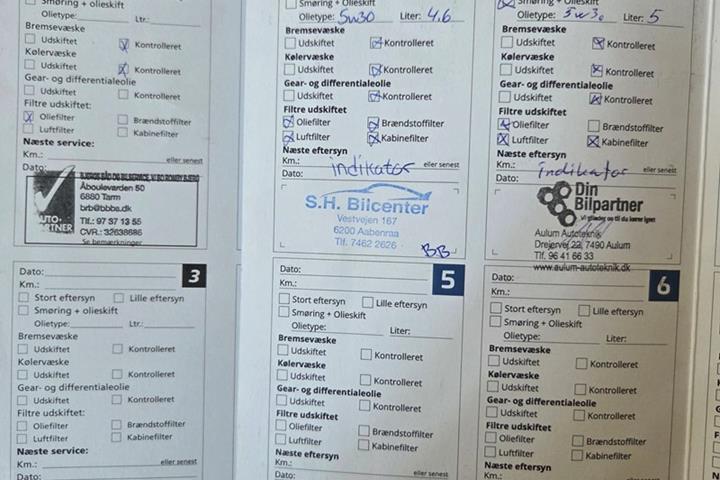 Smøring + olieskift
Olietype: Ltr.:
Bremsevæske
Udskiftet Kontrolleret
Kølervæske
Udskiftet Kontrolleret
Gear- og differentialeolie
Udskiftet Kontrolleret
Filtre udskiftet:
Oliefilter Brændstoffilter
Luftfilter Kabinefilter
Næste service:
Km.: eller senest
Dato:
AUTO-PARTNER
Åboulevarden 50
6880 Tarm
brb@bbbs.dk
Tlf.: 97 37 13 55
CVR.: 32638686
Se bemærkninger
Smøring + Olieskift
Olietype: 5w30 Liter: 4.6
Bremsevæske
Udskiftet Kontrolleret
Kølervæske
Udskiftet Kontrolleret
Gear- og differentialeolie
Udskiftet Kontrolleret
Filtre udskiftet
Oliefilter Brændstoffilter
Luftfilter Kabinefilter
Næste eftersyn
Km.: indikator eller senest
Dato:
S.H. Bilcenter
Vestvejen 167
6200 Aabenraa
Tlf. 7462 2626
BB
Smøring + Olieskift
Olietype: 5w30 Liter: 5
Bremsevæske
Udskiftet Kontrolleret
Kølervæske
Udskiftet Kontrolleret
Gear- og differentialeolie
Udskiftet Kontrolleret
Filtre udskiftet
Oliefilter Brændstoffilter
Luftfilter Kabinefilter
Næste eftersyn
Km.: indikator eller senest
Dato:
Din
Bilpartner
Vi glæder os til du kører igen!
Aulum Autoteknik
Drejervej 22, 7490 Aulum
Tlf. 96 41 66 33
www.aulum-autoteknik.dk
Dato: 3
Km.:
Stort eftersyn Lille eftersyn
Smøring + olieskift
Olietype: Ltr.:
Bremsevæske
Udskiftet Kontrolleret
Kølervæske
Udskiftet Kontrolleret
Gear- og differentialeolie
Udskiftet Kontrolleret
Filtre udskiftet:
Oliefilter Brændstoffilter
Luftfilter Kabinefilter
Næste service:
Km.: eller senest
Dato:
Dato: 5
Km.:
Stort eftersyn Lille eftersyn
Smøring + Olieskift
Olietype: Liter:
Bremsevæske
Udskiftet Kontrolleret
Kølervæske
Udskiftet Kontrolleret
Gear- og differentialeolie
Udskiftet Kontrolleret
Filtre udskiftet
Oliefilter Brændstoffilter
Luftfilter Kabinefilter
Næste eftersyn
Km.: eller senest
Dato:
Dato: 6
Km.:
Stort eftersyn Lille eftersyn
Smøring + Olieskift
Olietype: Liter:
Bremsevæske
Udskiftet Kontrolleret
Kølervæske
Udskiftet Kontrolleret
Gear- og differentialeolie
Udskiftet Kontrolleret
Filtre udskiftet
Oliefilter Brændstoffilter
Luftfilter Kabinefilter
Næste eftersyn
Km.: eller senest